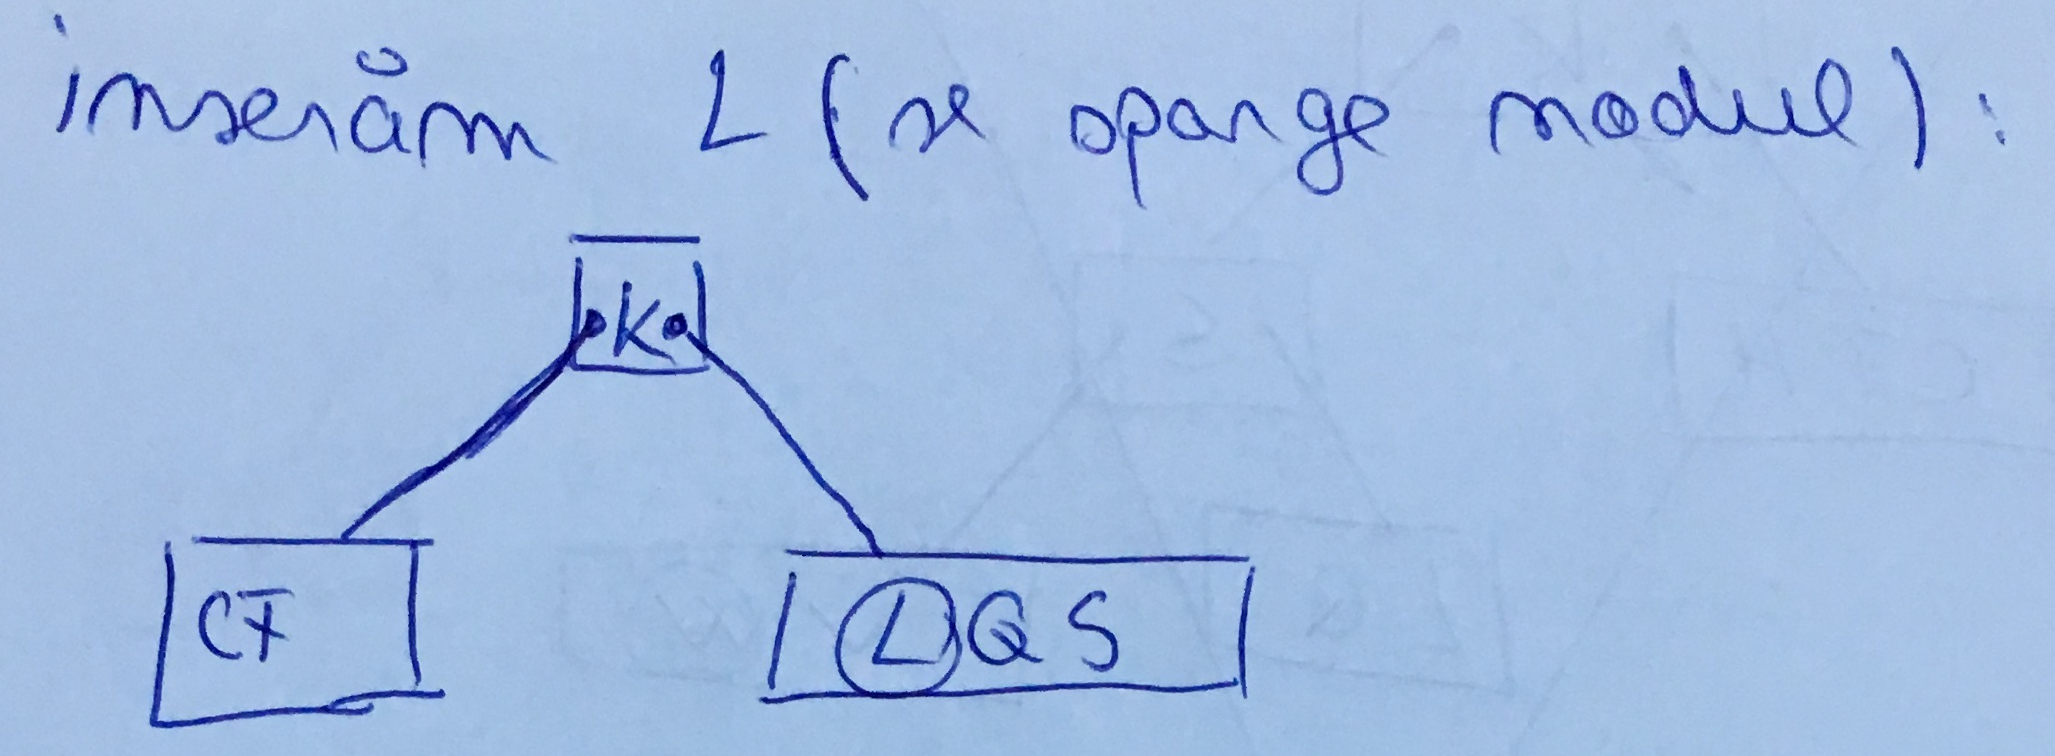 inserăm L (se sparge nodul):
K
CF
L Q S